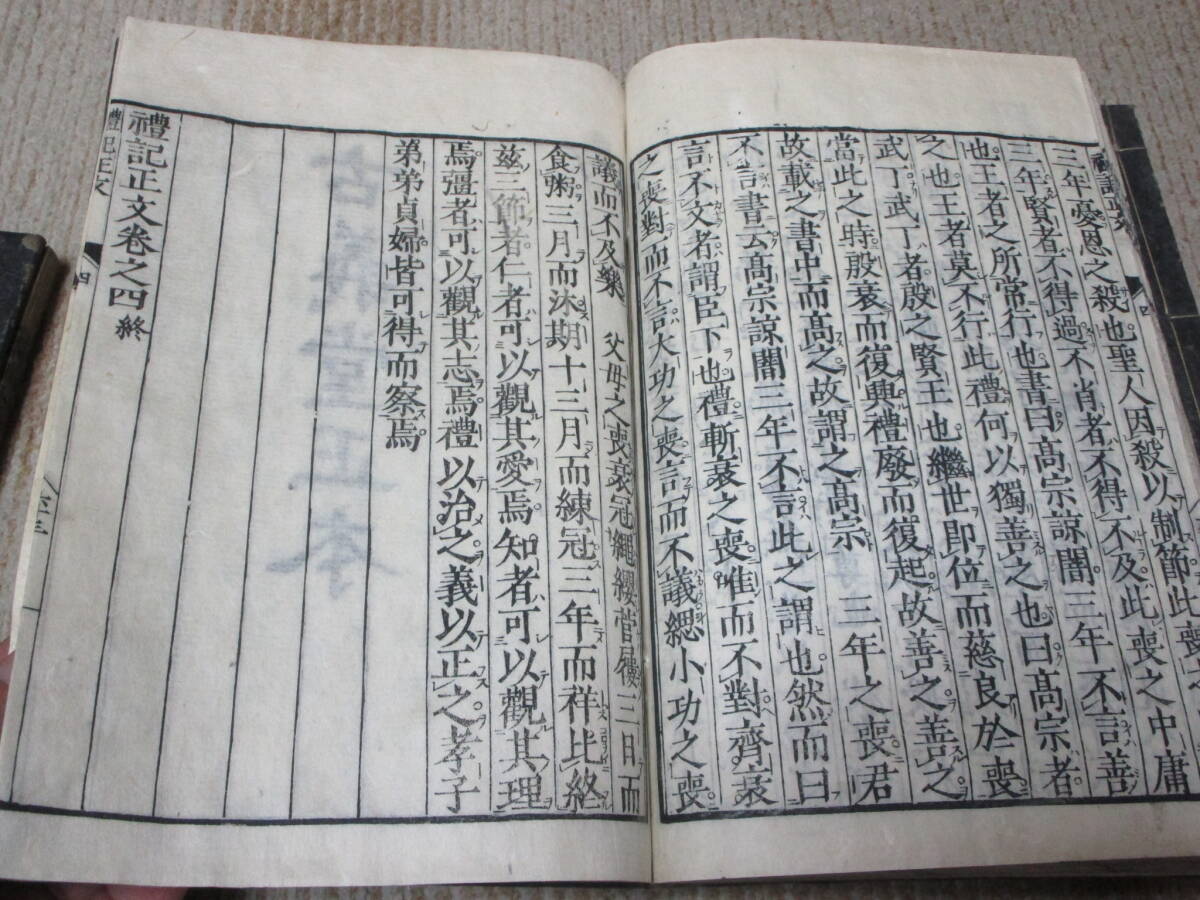 三年憂恩之殺也聖人因殺以制節此喪之
三年賢者不得過不肖者不得不及此喪之中庸
也王者之所常行也書曰高宗諒闇三年不言善
之也王者莫不行此禮何以獨善之也曰高宗者
武丁武丁者殷之賢王也繼世即位而慈良於喪
當此之時殷衰而復興禮廢而復起故善之善之
故載之書中而高之故謂之高宗 三年之喪君
不言書云高宗諒闇三年不言此之謂也然而曰
言不文者謂臣下也禮斬衰之喪唯而不對齊衰
之喪對而不言大功之喪言而不議緦小功之喪
議而不及樂 父母之喪衰冠繩纓菅屨三日而
食粥三月而沐期十三月而練冠三年而祥比終
茲三節者仁者可以觀其愛焉知者可以觀其理
焉彊者可以觀其志焉禮以治之義以正之孝子
弟弟貞婦皆可得而察焉
禮記正文卷之四終
禮記正文 四 六十三